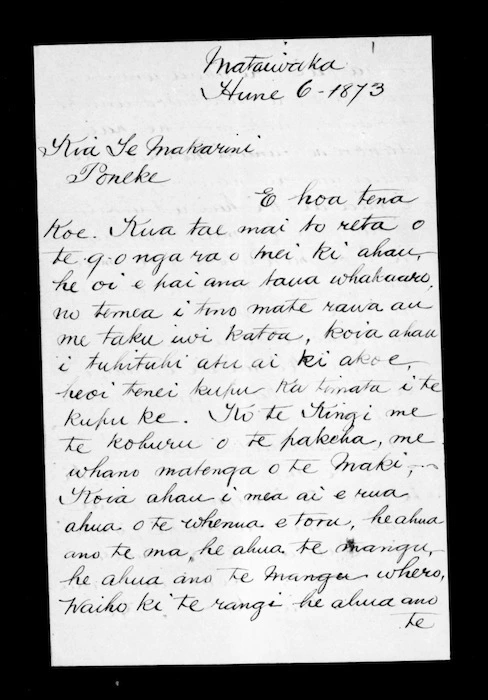 Mataiwaka
Hune 6-1873
Kia Te Makarini
Poneke
E hoa tena
Koe. Kua tae mai to reta o
te 9 o nga ra o Mei ki ahau,
he oi e pai ana taua whakaaro,
no temea i tino mate rawa au
me taku iwi katoa, koia ahau
i tuhituhi atu ai ki akoe,
heoi tenei kupu Ka timata i te
kupu ke. Ko te Kingi me
te kohuru o te pakeha, me
whano matenga o te Maki,
Koia ahau i mea ai e rua
ahua o te whenua e toru, he ahua
ano te ma, he ahua te mangu,
he ahua ano te Mangu whero,
Waiho ki te rangi he ahua ano
te